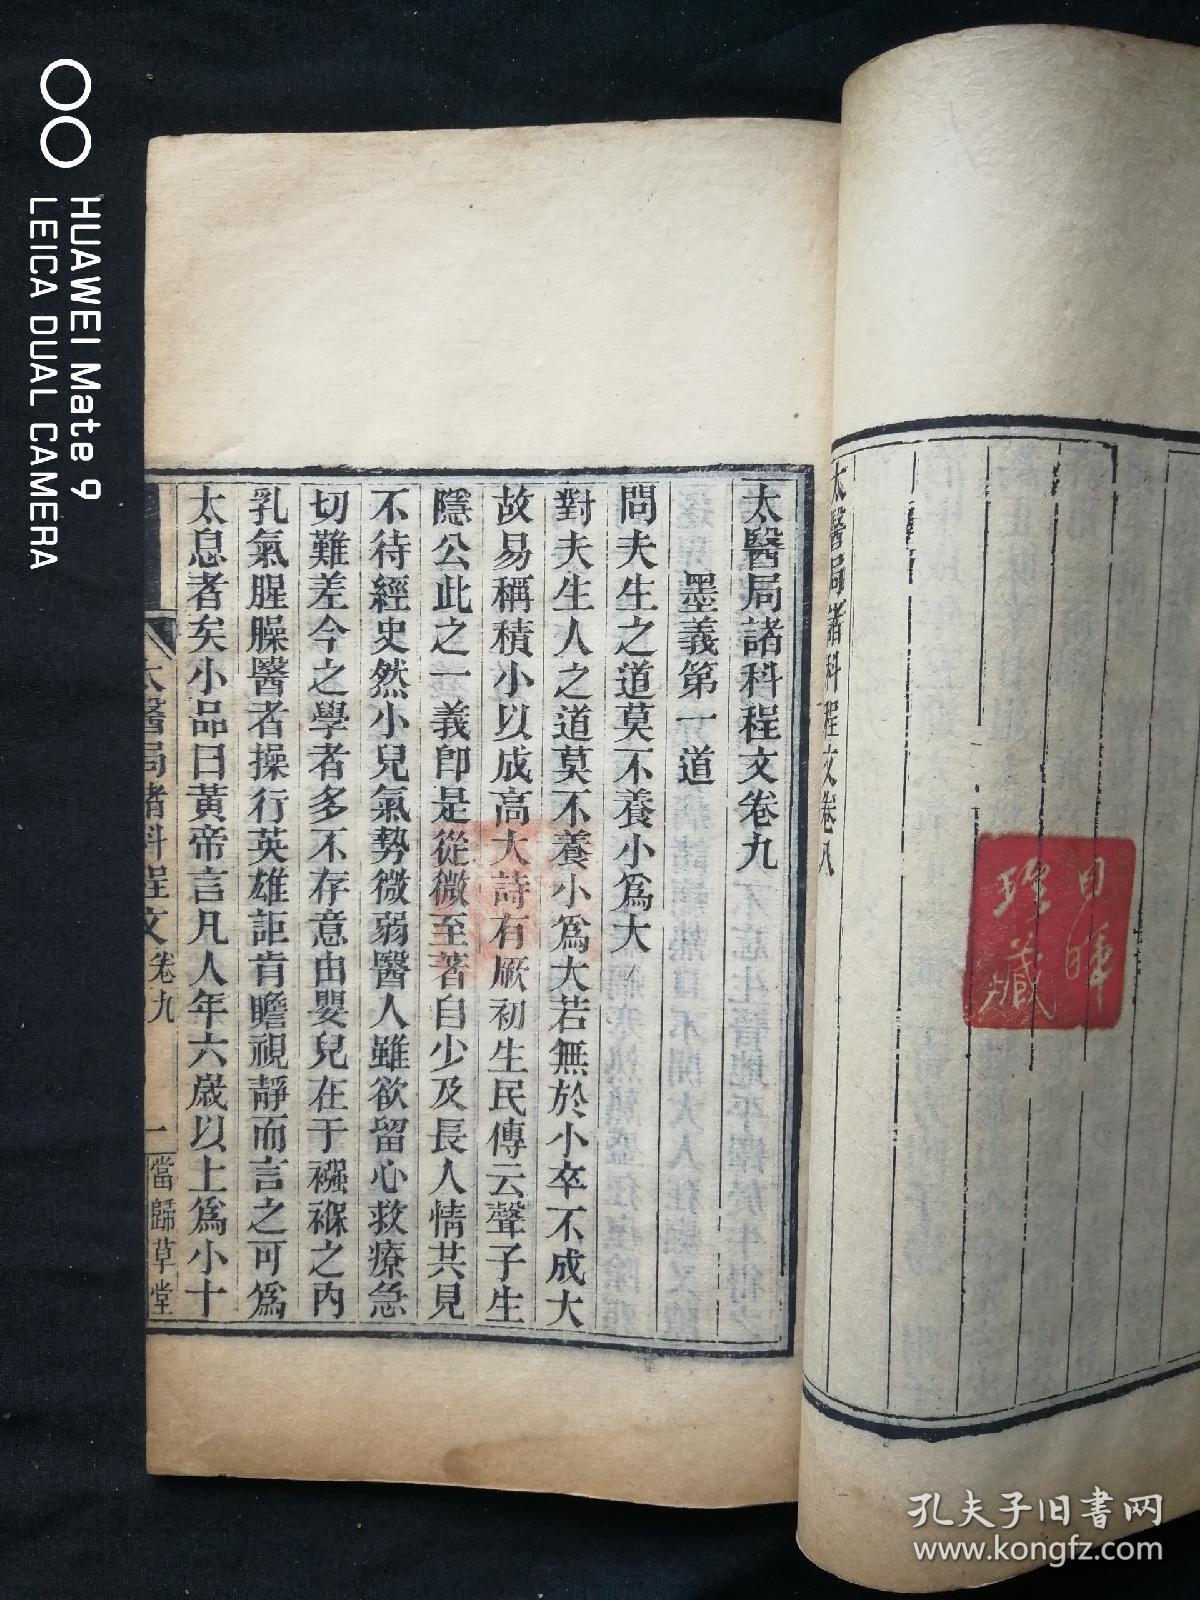 太醫局諸科程文卷八
太醫局諸科程文卷九
墨義第一道
問夫生之道莫不養小爲大
對夫生人之道莫不養小爲大若無於小卒不成大
故易稱積小以成高大詩有厥初生民傳云聲子生
隱公此之一義卽是從微至著自少及長人情共見
不待經史然小兒氣勢微弱醫人雖欲留心救療急
切難差今之學者多不存意由嬰兒在于襁褓之內
乳氣腥臊醫者操行英雄詎肯瞻視靜而言之可爲
太息者矣小品曰黃帝言凡人年六歲以上爲小十
太醫局諸科程文卷九
一
當歸草堂
珍藏
HUAWEI Mate 9
LEICA DUAL CAMERA
孔夫子旧书网
www.kongfz.com